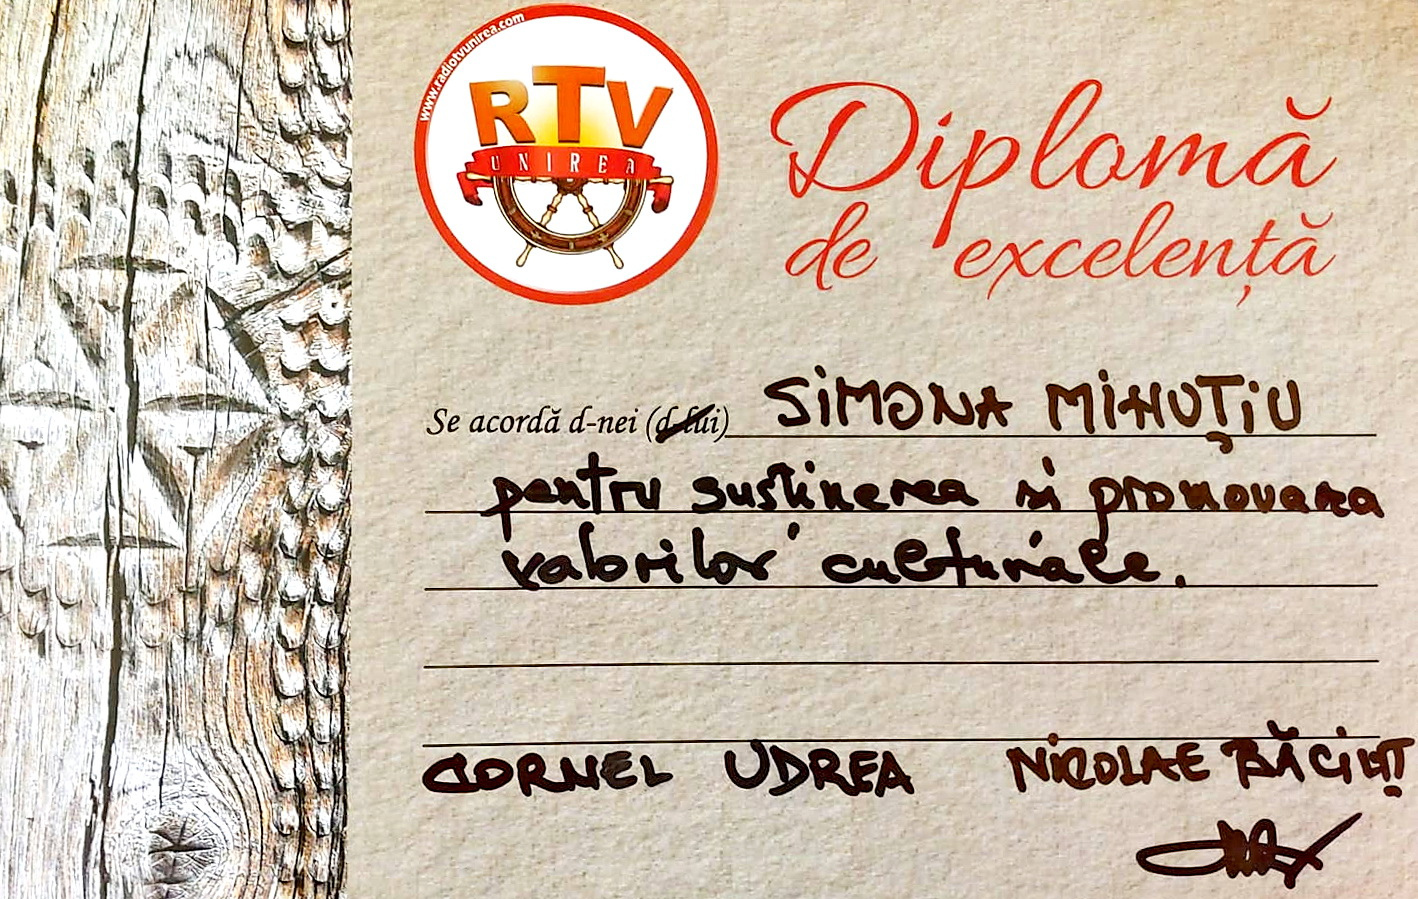 www.radiotvunirea.com
RTV
UNIREA
Diplomă
de excelență
Se acordă d-nei (d-lui) SIMONA MIHUȚIU
pentru susținerea si promovarea
valorilor culturale.
CORNEL UDREA NICOLAE BĂCIUȚ